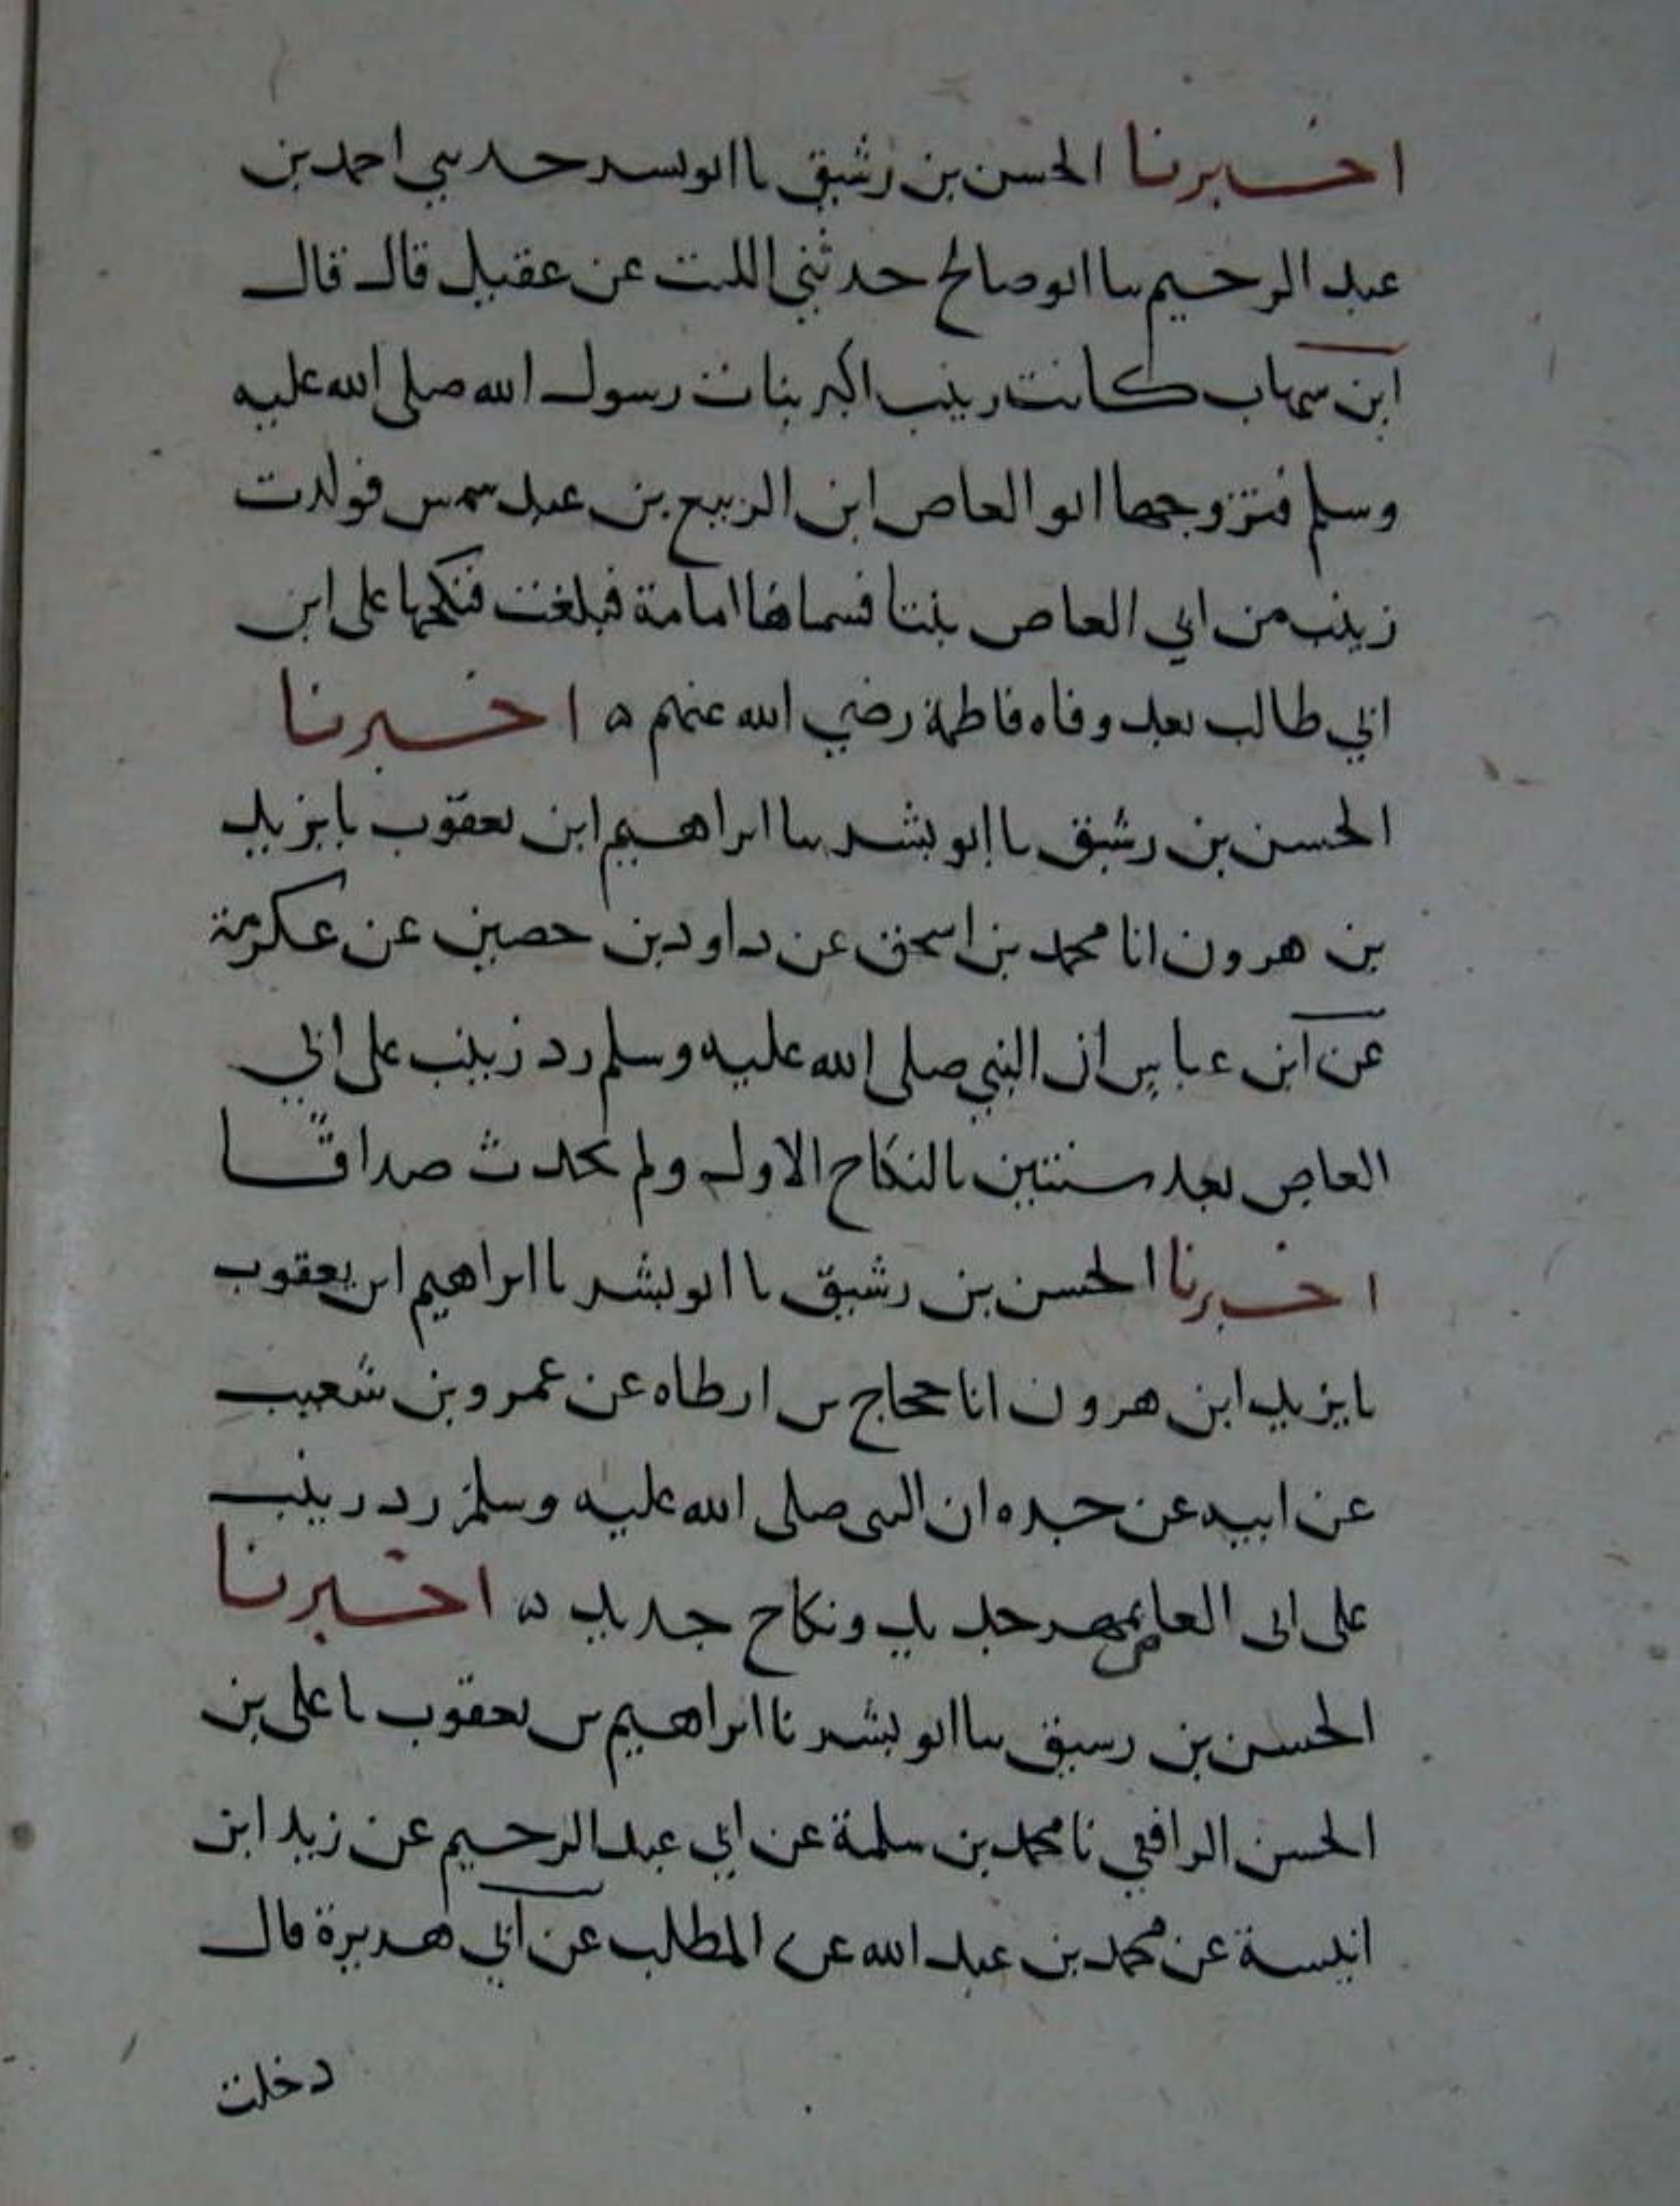 اخبرنا الحسن بن رشيق نا ابو بشر حدثني احمد بن
عبد الرحيم نا ابو صالح حدثني الليث عن عقيل قال قال
ابن شهاب كانت زينب اكبر بنات رسول الله صلى الله عليه
وسلم فتزوجها ابو العاص ابن الربيع بن عبد شمس فولدت
زينب من ابي العاص بنتا فسماها امامة فبلغت فنكحها على ابن
ابي طالب بعد وفاه فاطمة رضي الله عنهم ه اخبرنا
الحسن بن رشيق نا ابو بشر نا ابراهيم ابن يعقوب نا يزيد
بن هرون انا محمد بن اسحق عن داود بن حصين عن عكرمة
عن ابن عباس ان النبي صلى الله عليه وسلم رد زينب على ابي
العاص بعد سنتين بالنكاح الاول ولم يحدث صداقًا
اخبرنا الحسن بن رشيق نا ابو بشر نا ابراهيم ابن يعقوب
نا يزيد ابن هرون انا حجاج بن ارطاه عن عمرو بن شعيب
عن ابيه عن جده ان النبي صلى الله عليه وسلم رد زينب
على ابى العاص بمهر جديد ونكاح جديد ه اخبرنا
الحسن بن رشيق نا ابو بشر نا ابراهيم بن يعقوب نا على بن
الحسن الرافقي نا محمد بن سلمة عن ابي عبد الرحيم عن زيد ابن
انيسة عن محمد بن عبد الله عن المطلب عن ابي هريرة قال
دخلت